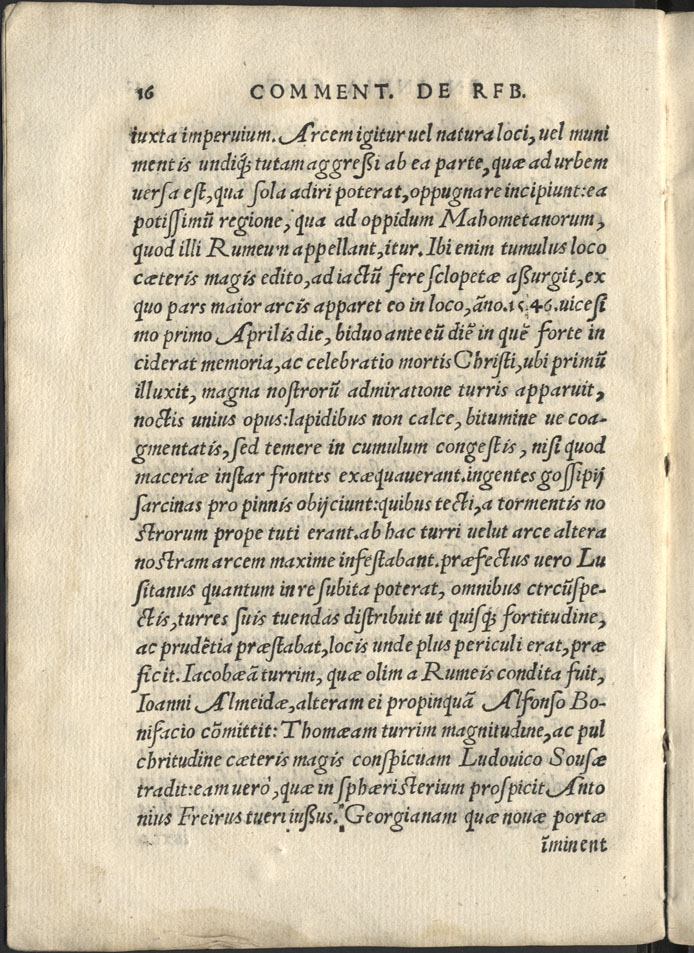 16 COMMENT. DE RFB.
iuxta imperuium. Arcem igitur uel natura loci, uel muni
mentis undiq; tutam aggreßi ab ea parte, quæ ad urbem
uersa est, qua sola adiri poterat, oppugnare incipiunt: ea
potissimū regione, qua ad oppidum Mahometanorum,
quod illi Rumeun appellant, itur. Ibi enim tumulus loco
cæteris magis edito, ad iactū fere sclopetæ aßurgit, ex
quo pars maior arcis apparet eo in loco, āno. 1546. uicesi
mo primo Aprilis die, biduo ante eū diē in quē forte in
ciderat memoria, ac celebratio mortis Christi, ubi primū
illuxit, magna nostrorū admiratione turris apparuit,
noctis unius opus: lapidibus non calce, bitumine ue coa-
gmentatis, sed temere in cumulum congestis, nisi quod
maceriæ instar frontes exæquauerant. ingentes gossipij
sarcinas pro pinnis obijciunt: quibus tecti, a tormentis no
strorum prope tuti erant. ab hac turri uelut arce altera
nostram arcem maxime infestabant. præfectus uero Lu
sitanus quantum in re subita poterat, omnibus ctrcūspe-
ctis, turres suis tuendas distribuit ut quisq; fortitudine,
ac prudētia præstabat, locis unde plus periculi erat, præ
ficit. Iacobæā turrim, quæ olim a Rumeis condita fuit,
Ioanni Almeidæ, alteram ei propinquā Alfonso Bo-
nifacio cōmittit: Thomæam turrim magnitudine, ac pul
chritudine cæteris magis conspicuam Ludouico Sousæ
tradit: eam uero, quæ in sphæristerium prospicit Anto
nius Freirus tueri iußus. Georgianam quæ nouæ portæ
īminent